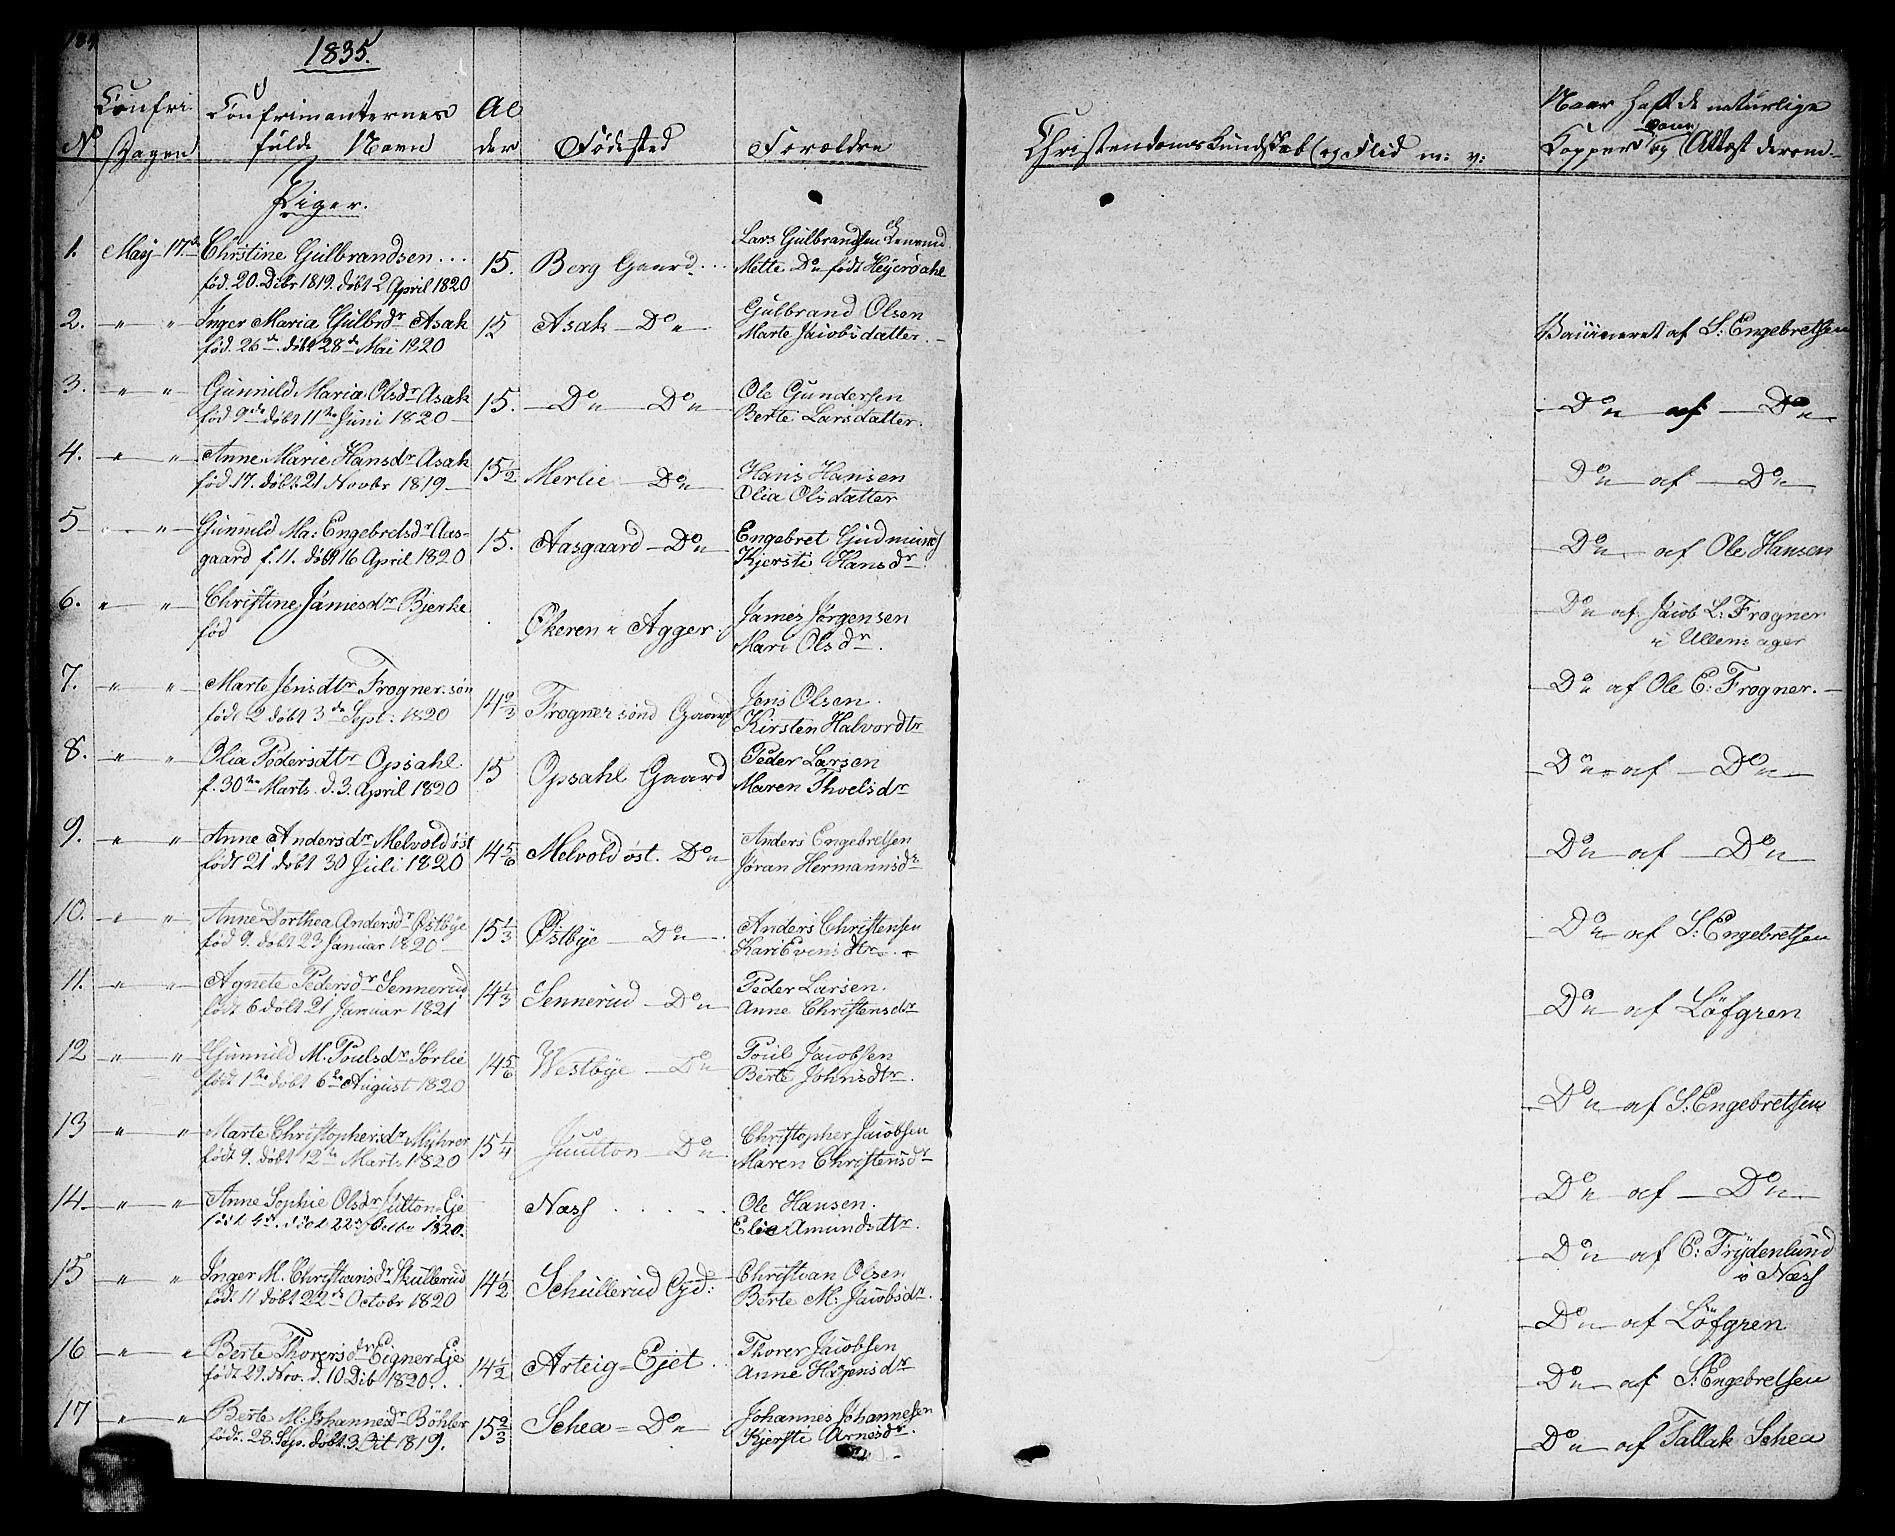 1835.
No
Confri. Dagen
Confrimanternes fulde Navn
Alder
Fødested
Forældre
Christendoms Kundskab og Flid m: v:
Naar haft de naturlige
Kopper og Attest derom
Piger.
1. May 17de Christine Gulbrandsen... 15. Berg Gaard... Lars Gulbrandsen
fød. 20. Dcbr 1819. døbt 2 April 1820 Mette Do født Heyerdahl
2. " " Inger Maria Gulbrdr Asak 15 Asak Do Gulbrand Olsen Vaccineret af S: Engebretsen
fød. 26de døbt 28de Mai 1820 Marte Jacobsdatter.
3. " " Gunnild Maria Olsdr Asak 15. Do Do Ole Gundersen Do af Do
fød 9de døbt 11te Juni 1820 Berte Larsdatter.
4. " " Anne Marie Hansdr Asak 15 1/2 Merlie Do Hans Hansen Do af Do
fød 17. døbt 21 Novbr 1819 Olia Olsdatter
5 " " Gunnild Ma: Engebretsdr Aas- 15. Aasgaard Do Engebret Gudmunds Do af Ole Hansen
gaard f. 11. døbt 16 April 1820 Kjersti Hansdr
6. " " Christine Jamesdr Bjerke Økeren i Agger James Jørgensen Do af Jacob L: Frogner
fød Mari Olsdr. i Ullensager
7. " " Marte Jensdtr Frogner søn 14 2/3 Frogner sønd Gaard Jens Olsen. Do af Ole E: Frogner.
født 2 døbt 3de Sept: 1820 Kirsten Halvordtr
8. " " Olia Pedersdtr Opsahl. 15 Opsahl Gaard Peder Larsen Do af Do
f. 30te Marts. d. 3. April 1820 Maren Thoelsdr
9. " " Anne Andersdr Melvold øst 14 5/6 Melvold øst. Do Anders Engebretsen Do af Do
født 21 døbt 30 Juli 1820 Jøran Hermannsdr
10. " " Anne Dorthea Andersdr Østbye 15 1/3 Østbye Do Anders Christensen Do af S: Engebretsen
fød 9. døbt 23 Januar 1820 Kari Evensdtr
11. " " Agnete Pedersdr Sennerud 14 1/3 Sennerud Do Peder Larsen. Do af Löfgren
født 6 døbt 21 Januar 1821 Anne Christensdr
12 " " Gunnild M. Poulsdr Sørlie 14 5/6 Westbye Do Poul Jacobsen Do af S: Engebretsen
født 1te døbt 6te August 1820 Berte Johnsdtr.
13 " " Marte Christophersdr Myhrer 15 1/4 Juulton Do Christopher Jacobsen Do af Do
født 9. døbt 12te Marts 1820 Maren Christensdr
14 " " Anne Sophie Olsdr Jultom Eje Næss Ole Hansen. Do af E: Frydenlund
født 4de døbt 22 Octbr 1820. Elie Amundsdtr. i Næss
15 " " Inger M. Christiansdr Skullerud 14 1/2 Schullerud Gd: Christian Olsen Do af Löfgren
fød. 11 døbt 22de Octobr 1820 Berte M: Jacobsdr.
16 " " Berte Thorersdr Eigner-Eje 14 1/2 Arteig=Ejet Thorer Jacobsen Do af S: Engebretsen
født 29. Nov. d. 10 Dcb 1820. Anne Hagensdr
17 " " Berte M: Johannesdr Bøhler 15 2/3 Schea= Do Johannes Johannesen Do af Tallak Schea
født. 28. Sep. døbt. 3 Oct 1819. Kjersti Arnesdr.